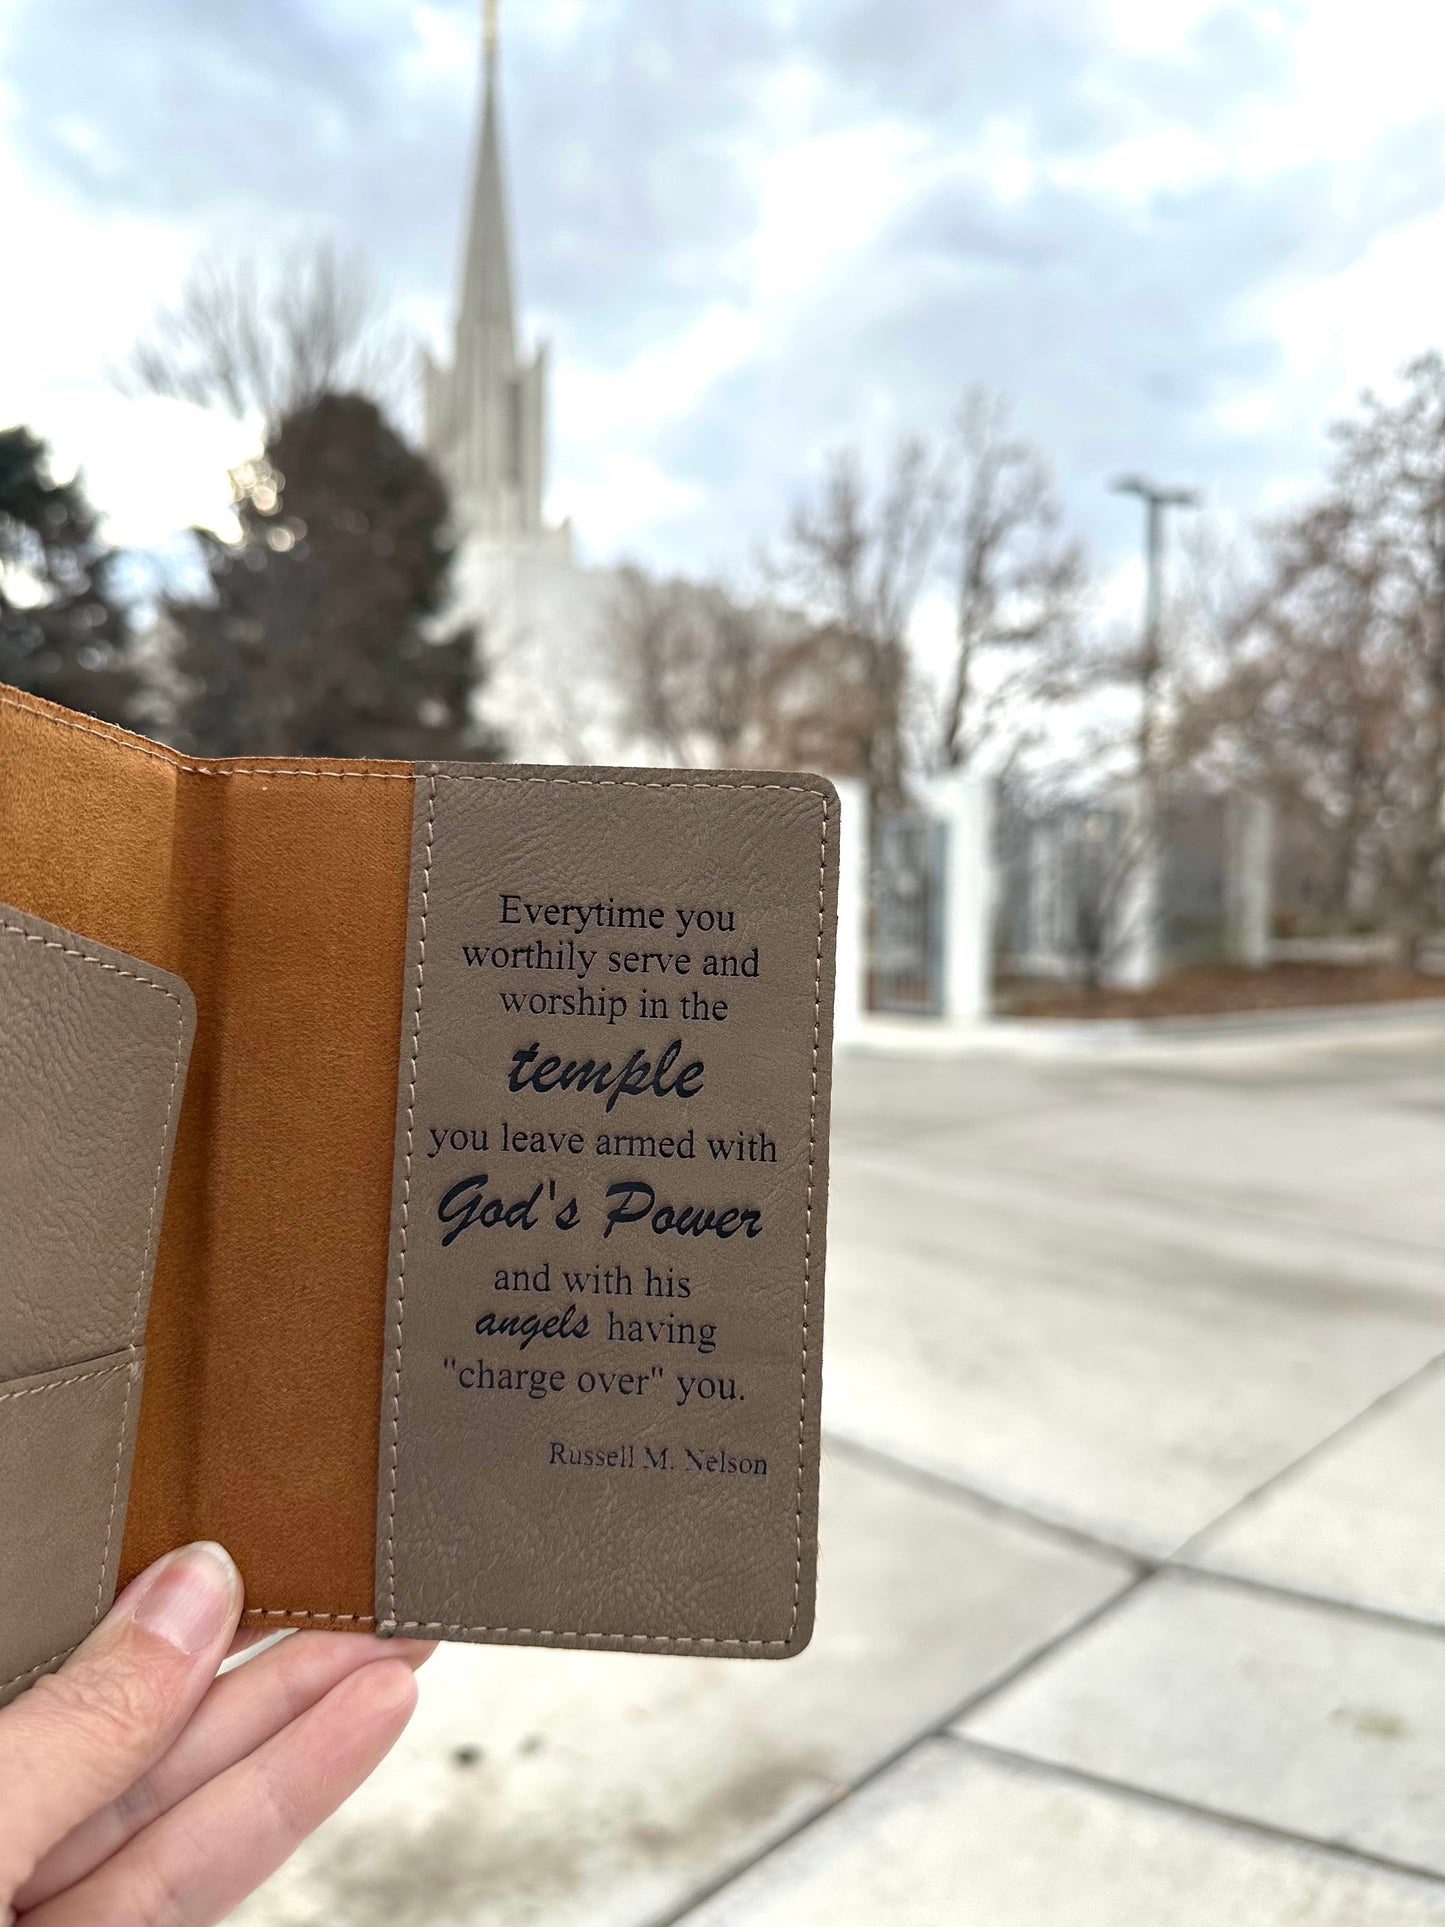 Everytime you
worthily serve and
worship in the
temple
you leave armed with
God's Power
and with his
angels having
"charge over" you.
Russell M. Nelson